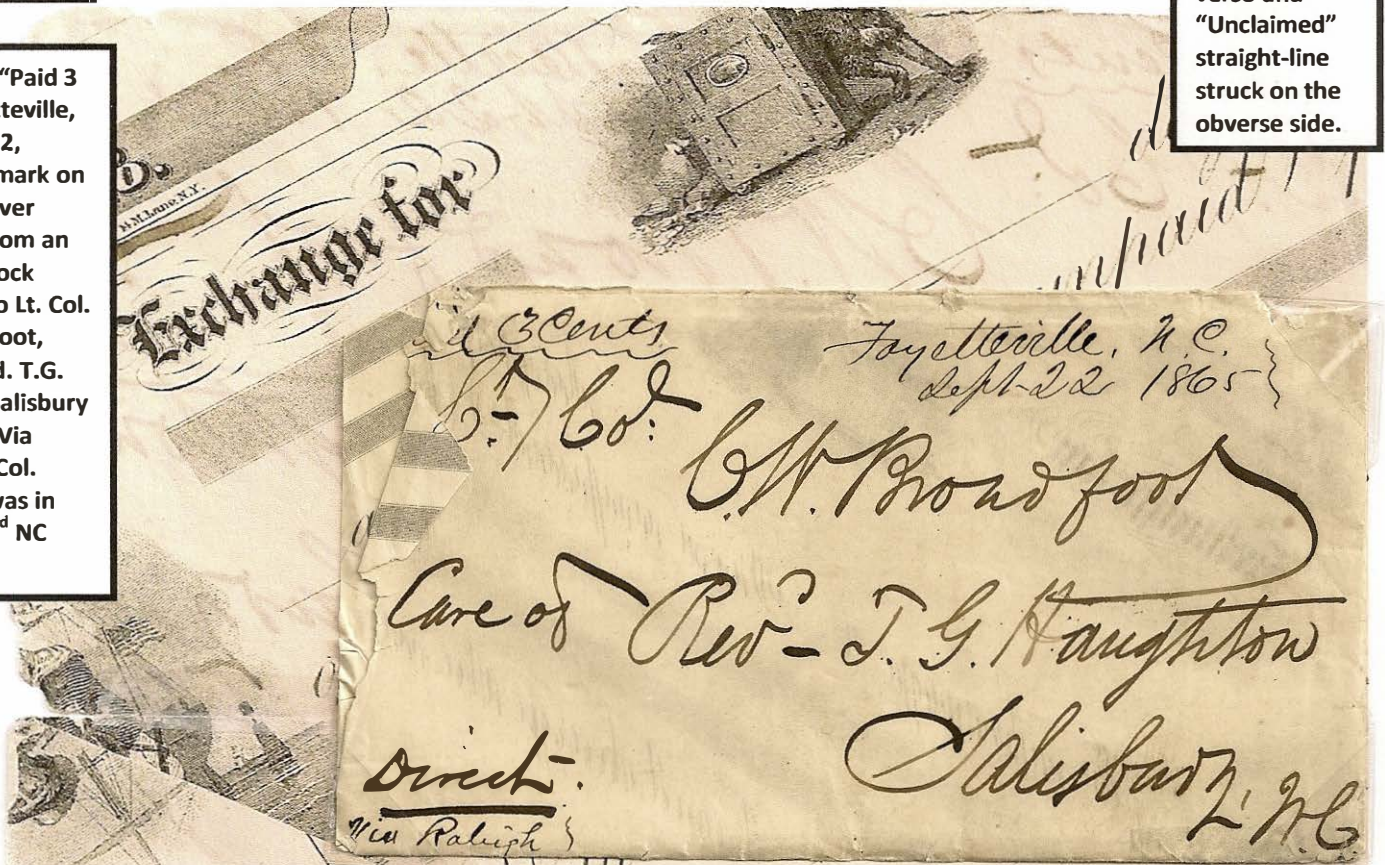 “Paid 3
tteville,
2,
mark on
ver
om an
ock
o Lt. Col.
oot,
d. T.G.
alisbury
Via
Col.
was in
rd NC
verse and
“Unclaimed”
straight-line
struck on the
obverse side.
M.Lane,N.Y.
Exchange for
unpaid
id 3 Cents
Fayetteville, N.C.
Sept-22 1865
Lt Col:
C.W. Broadfoot
Care of Revd - T. G. Haughton
Salisbury, N.C
Direct.
Via Raleigh